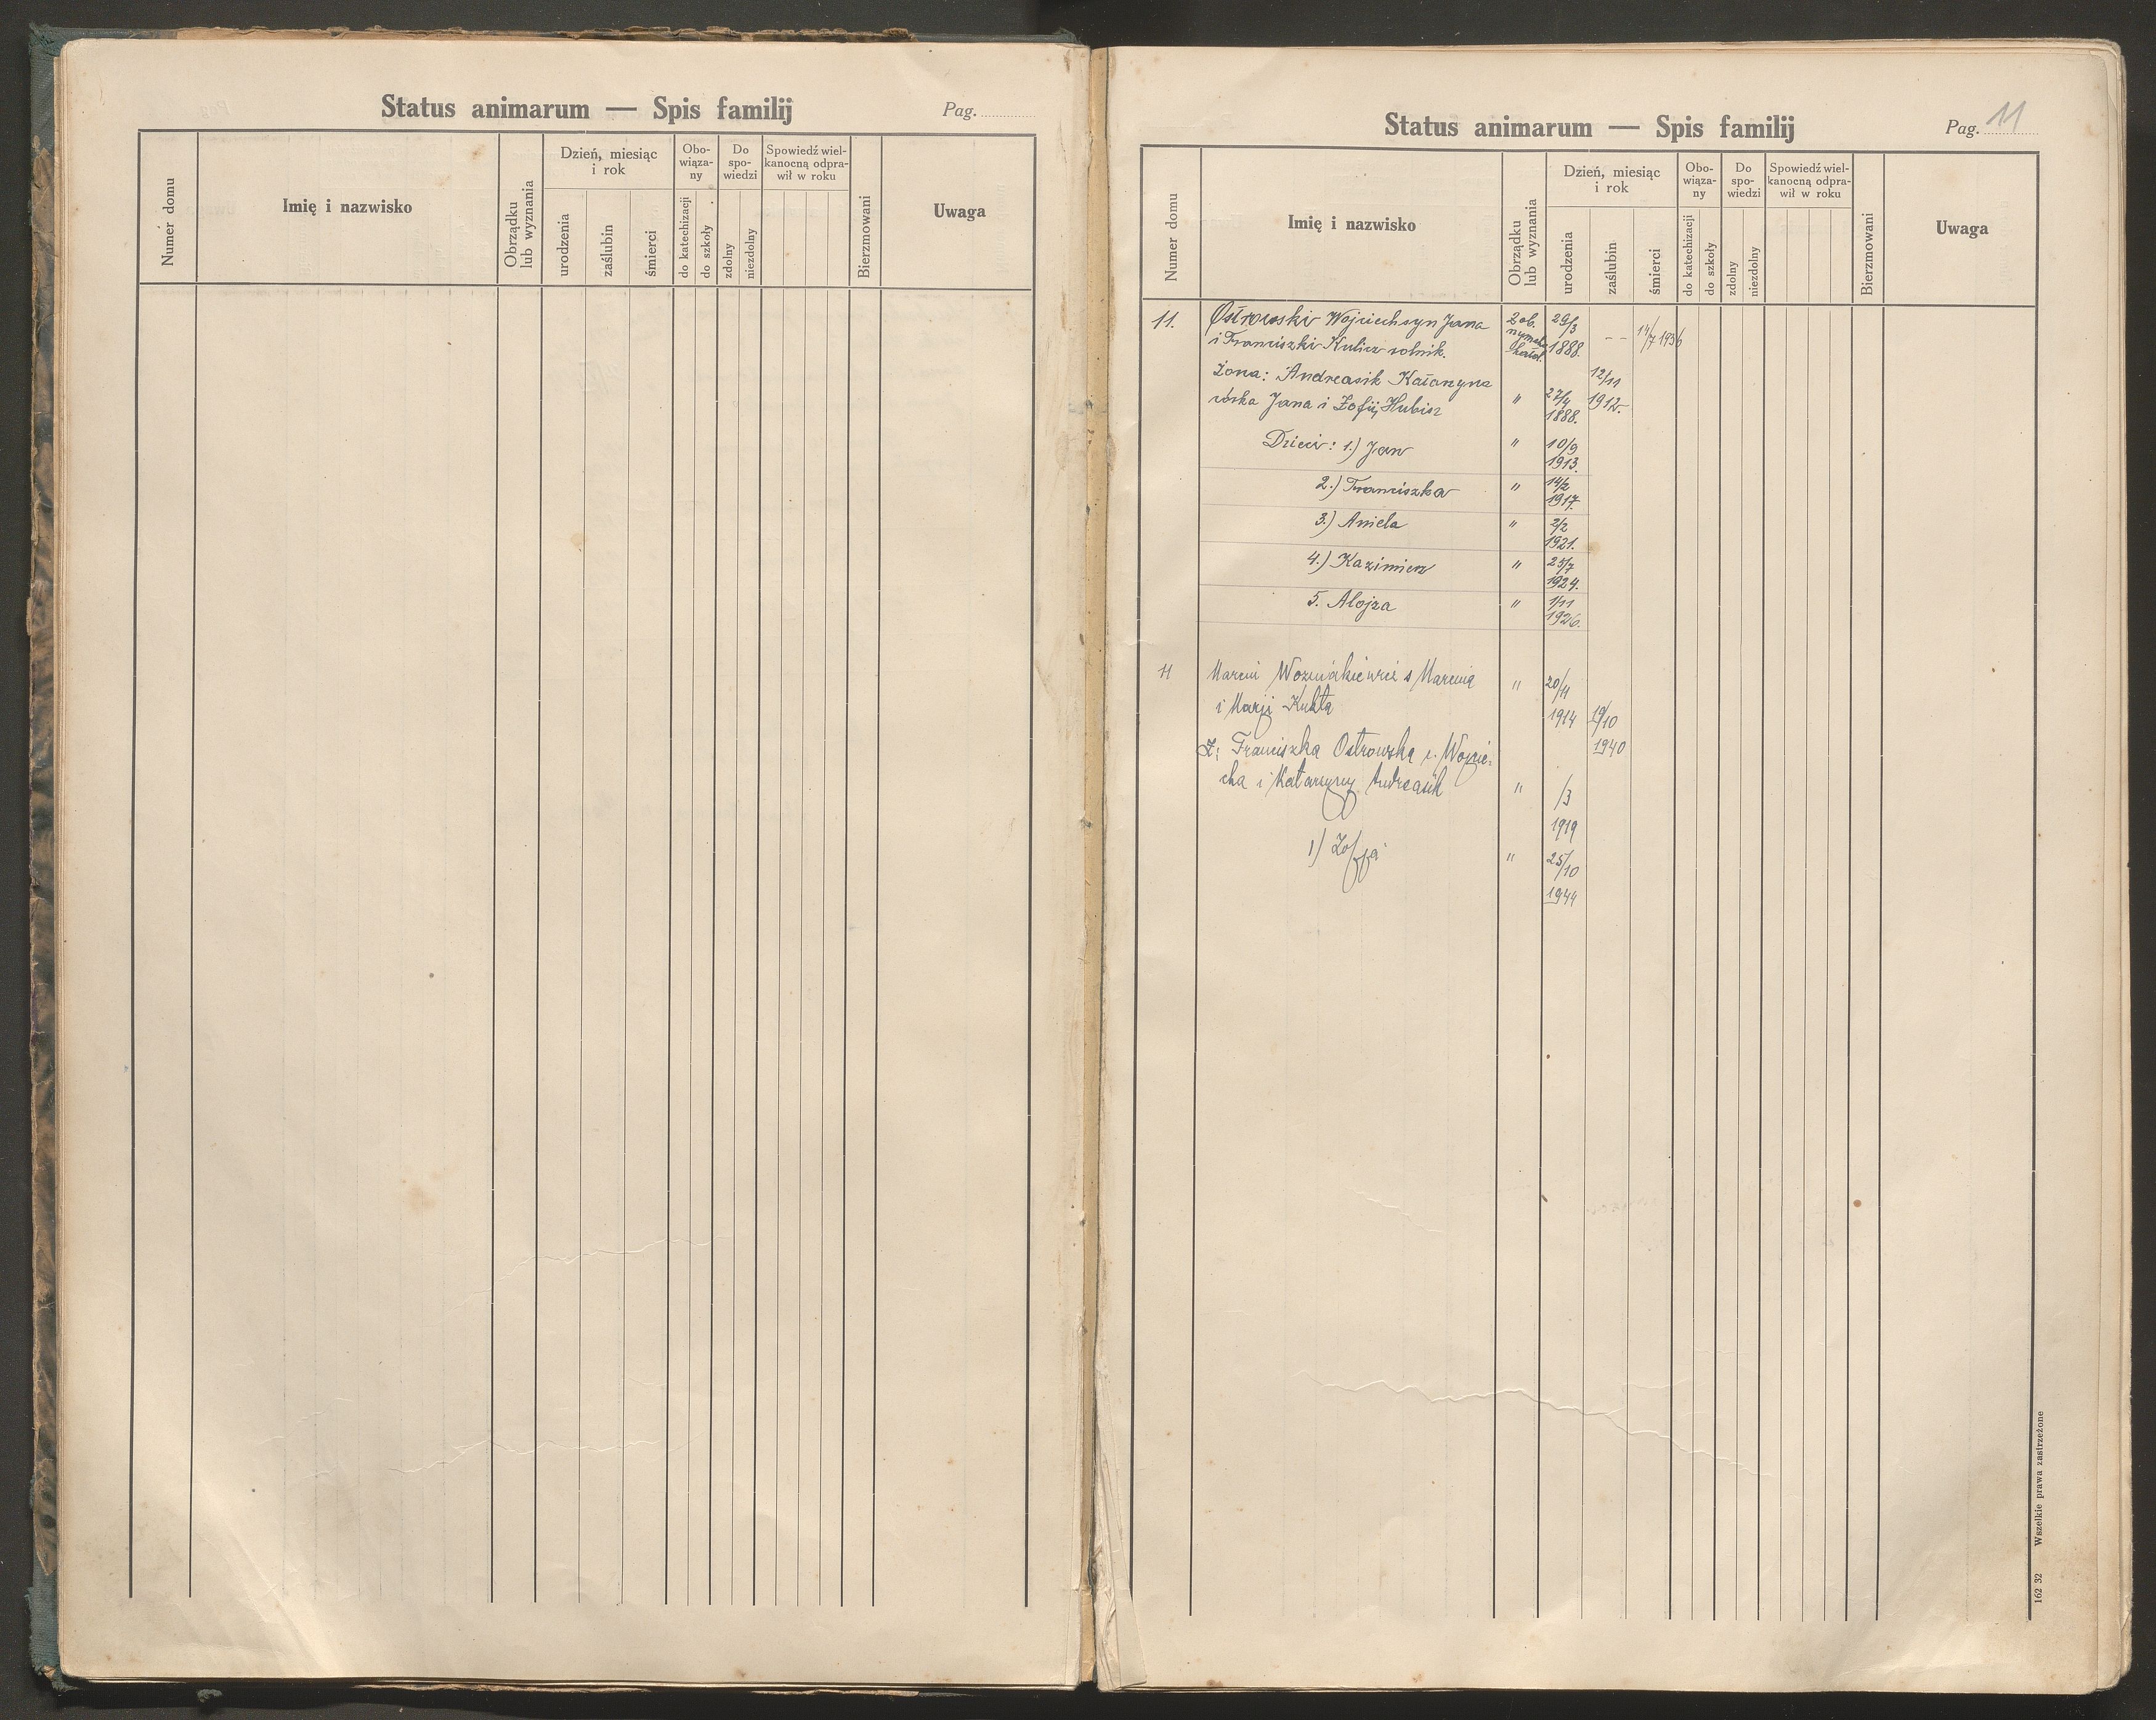 Status animarum — Spis familij
Pag.
Numer domu
Imię i nazwisko
Obrządku lub wyznania
Dzień, miesiąc i rok
urodzenia
zaślubin
śmierci
Obo-
wiąza-
ny
do katechizacji
do szkoły
Do
spo-
wiedzi
zdolny
niezdolny
Spowiedź wiel-
kanocną odpra-
wił w roku
Bierzmowani
Uwaga
Status animarum — Spis familij
Pag. 11
Numer domu
Imię i nazwisko
Obrządku lub wyznania
Dzień, miesiąc i rok
urodzenia
zaślubin
śmierci
Obo-
wiąza-
ny
do katechizacji
do szkoły
Do
spo-
wiedzi
zdolny
niezdolny
Spowiedź wiel-
kanocną odpra-
wił w roku
Bierzmowani
Uwaga
11. Ostrowski Wojciech syn Jana 29/3
i Franciszki Kulicz rolnik. 1888. - - 14/7 1936
Żona: Andreasik Katarzyna 12/11
córka Jana i Zofij Hubisz " 27/4 1912.
1888.
Dzieci: 1.) Jan " 10/9
1913.
2.) Franciszka " 14/2
1917.
3.) Aniela " 2/2
1921.
4.) Kazimierz " 25/7
1924.
5. Alojza " 1/11
1926.
11 Marcin Woźniakiewicz s Marcina " 20/11
i Marji Kukla 1914 19/10
Ż: Franciszka Ostrowska c. Wojcie- 1940
cha i Katarzyny Andreasik " /3
1919
1) Zofja " 25/10
1944
162 32 Wszelkie prawa zastrzeżone